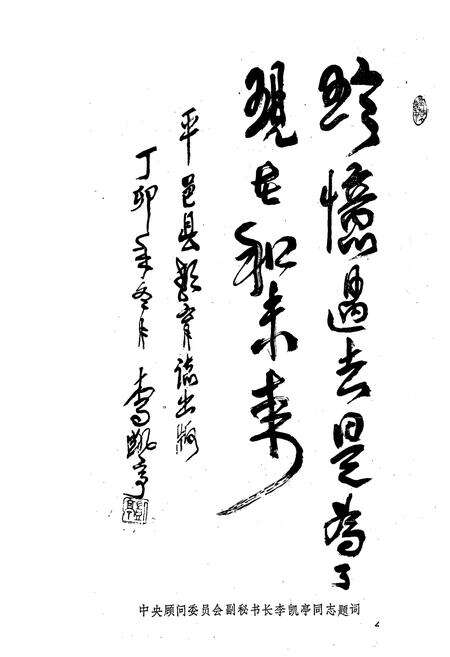 珍憶過去是為了
現在和未来
平邑县教育誌出版
丁卯年冬月 李凯亭
中央顾问委员会副秘书长李凯亭同志题词